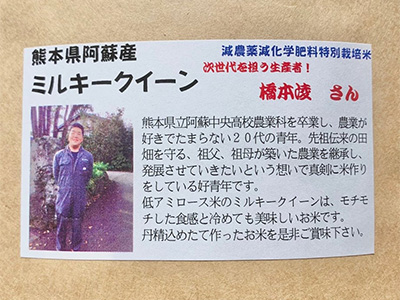 熊本県阿蘇産
減農薬減化学肥料特別栽培米
ミルキークイーン
次世代を担う生産者!
橋本凌 さん
熊本県立阿蘇中央高校農業科を卒業し、農業が
好きでたまらない20代の青年。先祖伝来の田
畑を守る、祖父、祖母が築いた農業を継承し、
発展させていきたいという想いで真剣に米作り
をしている好青年です。
低アミロース米のミルキークイーンは、モチモ
チした食感と冷めても美味しいお米です。
丹精込めたて作ったお米を是非ご賞味下さい。